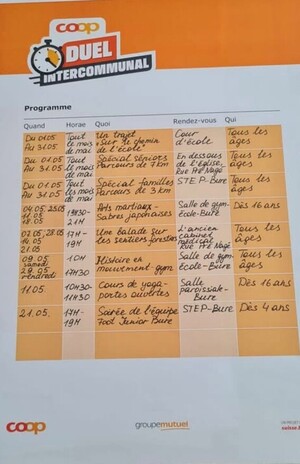 coop
DUEL
INTERCOMMUNAL
Programme
Quand Horae Quoi Rendez-vous Qui
Du 01.05 Au 31.05 Tout le mois de mai Un trajet sur le chemin de l'école Cour d'école Tous les âges
Du 01.05 Au 31.05 Tout le mois de mai Spécial séniors Parcours de 7km En dessous de l'Église, Rue Pré Nagé Tous les âges
Du 01.05 Au 31.05 Tout les mois de mai Spécial familles Parcours de 3 km STEP-Bure Tous les âges
04.05, 25.05 11.05 18.05 19H30- 21H Arts martiaux- Sabres japonaises Salle de gym- école-Bure Dès 16 ans
07.05, 28.05 14.05 21.05 17H - 19H Une Balade sur les sentiers forestiers L'ancien cabinet médical Rue Pré Nagé Tous les âges
09.05 samedi 29.05 vendredi 10H 17H30 Histoire en mouvement gym Salle de gym- école-Bure Tous les âges
11.05. 10H30- 11H30 Cours de yoga- portes ouvertes Salle paroissiale- Bure Dès 16 ans
21.05. 17H - 19H Soirée de l'équipe Foot Junior Bure STEP-Bure Dès 4 ans
coop
groupemutuel